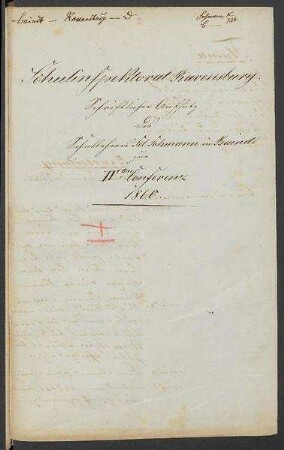 Baindt – Ravensburg – D
Schulinspektorat Ravensburg.
Schriftlicher Aufsatz
des
Schullehrers Tehmann in Baindt
zur
IVten Conferenz
1860.